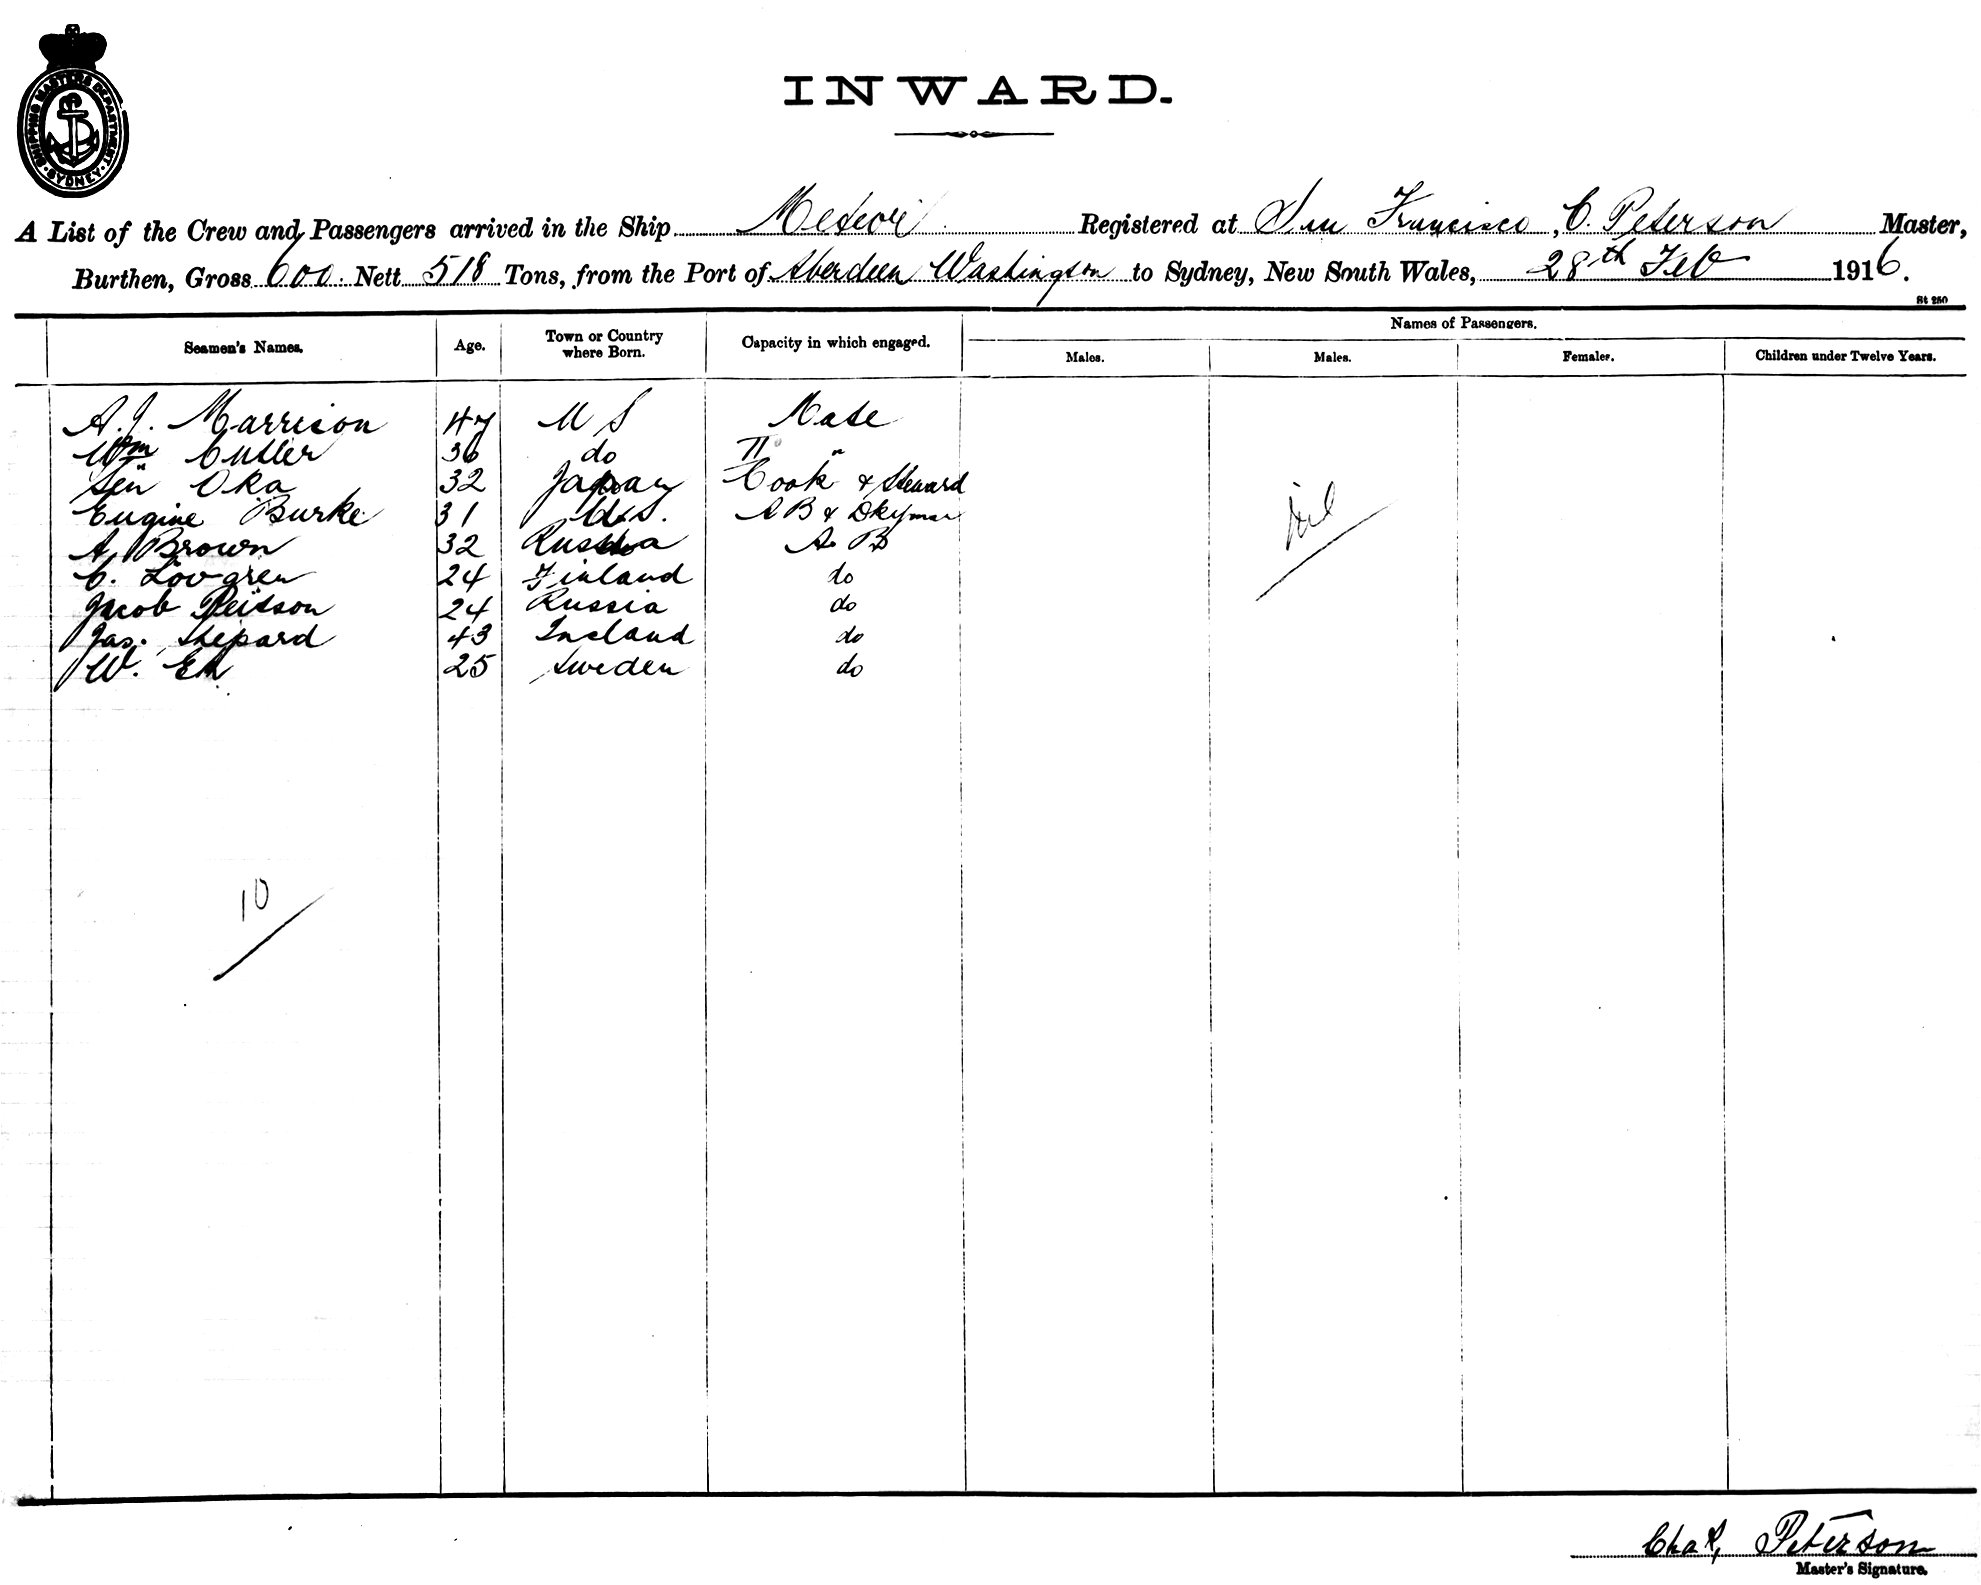 SHIPPING MASTERS DEPARTMENT
SYDNEY
INWARD.
A List of the Crew and Passengers arrived in the Ship Meteor Registered at San Francisco, C. Peterson Master,
Burthen, Gross 600. Nett 518 Tons, from the Port of Aberdeen Washington to Sydney, New South Wales, 28th Feb 1916.
St 250
Seamen's Names. Age. Town or Country where Born. Capacity in which engaged. Names of Passengers.
Males. Males. Females. Children under Twelve Years.
A.J. Marrison 47 U S Mate
Wm Cutler 36 do II "
Sen Oka 32 Japan Cook & Steward
Eugine Burke 31 U.S. A B & Dkyman
A. Brown 32 Russia A. B
C. Lovgren 24 Finland do
Jacob Reitson 24 Russia do
Jas. Shepard 43 Ireland do
W. Ek 25 Sweden do
Nil
10
Chas, Peterson
Master's Signature.